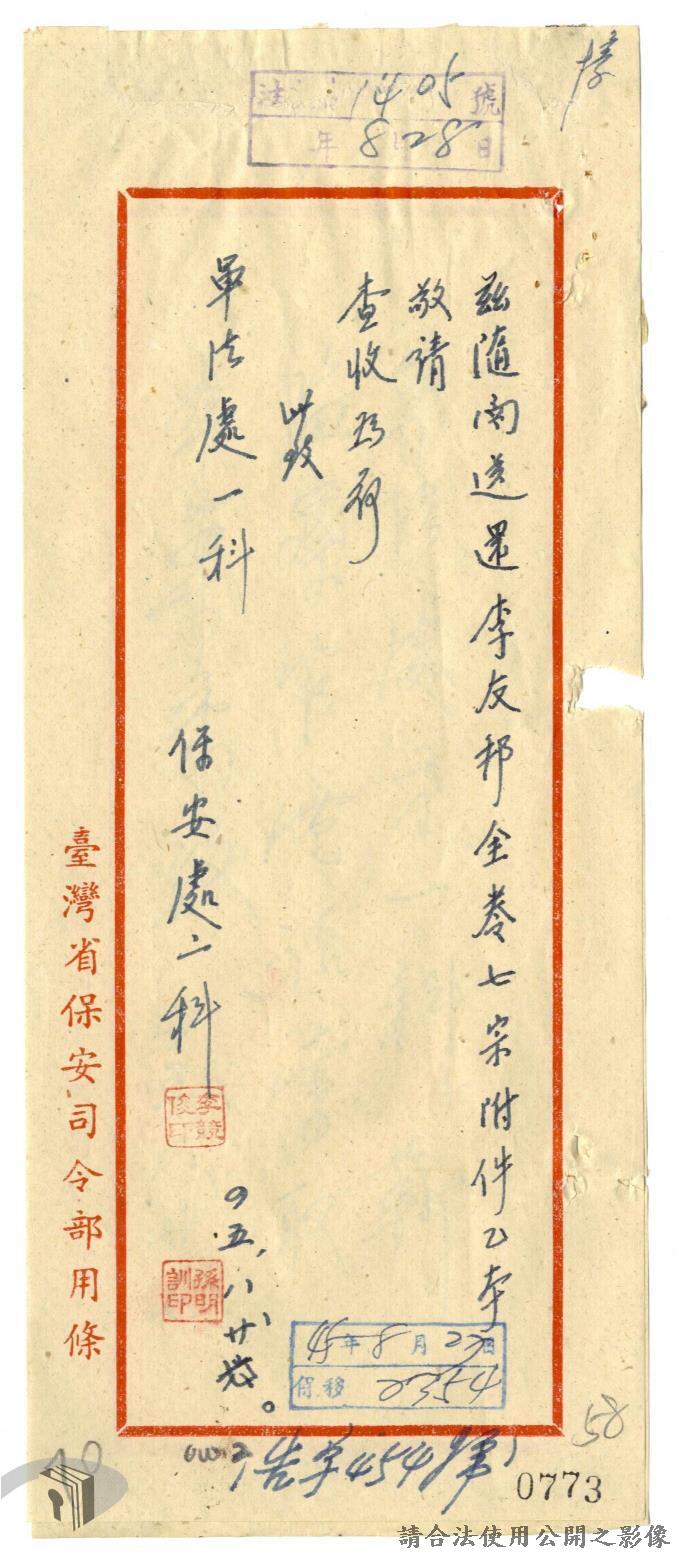 法 1405 號
年 8 28 日
茲隨函送還李友邦全卷七宗附件乙本
敬請
查收為荷
此致
軍法處一科
保安處二科
李競俊印
孫明訓印
四五,八,廿
45年8月2 日
保移 2354
臺灣省保安司令部用條
浩字454號
58
0773
請合法使用公開之影像